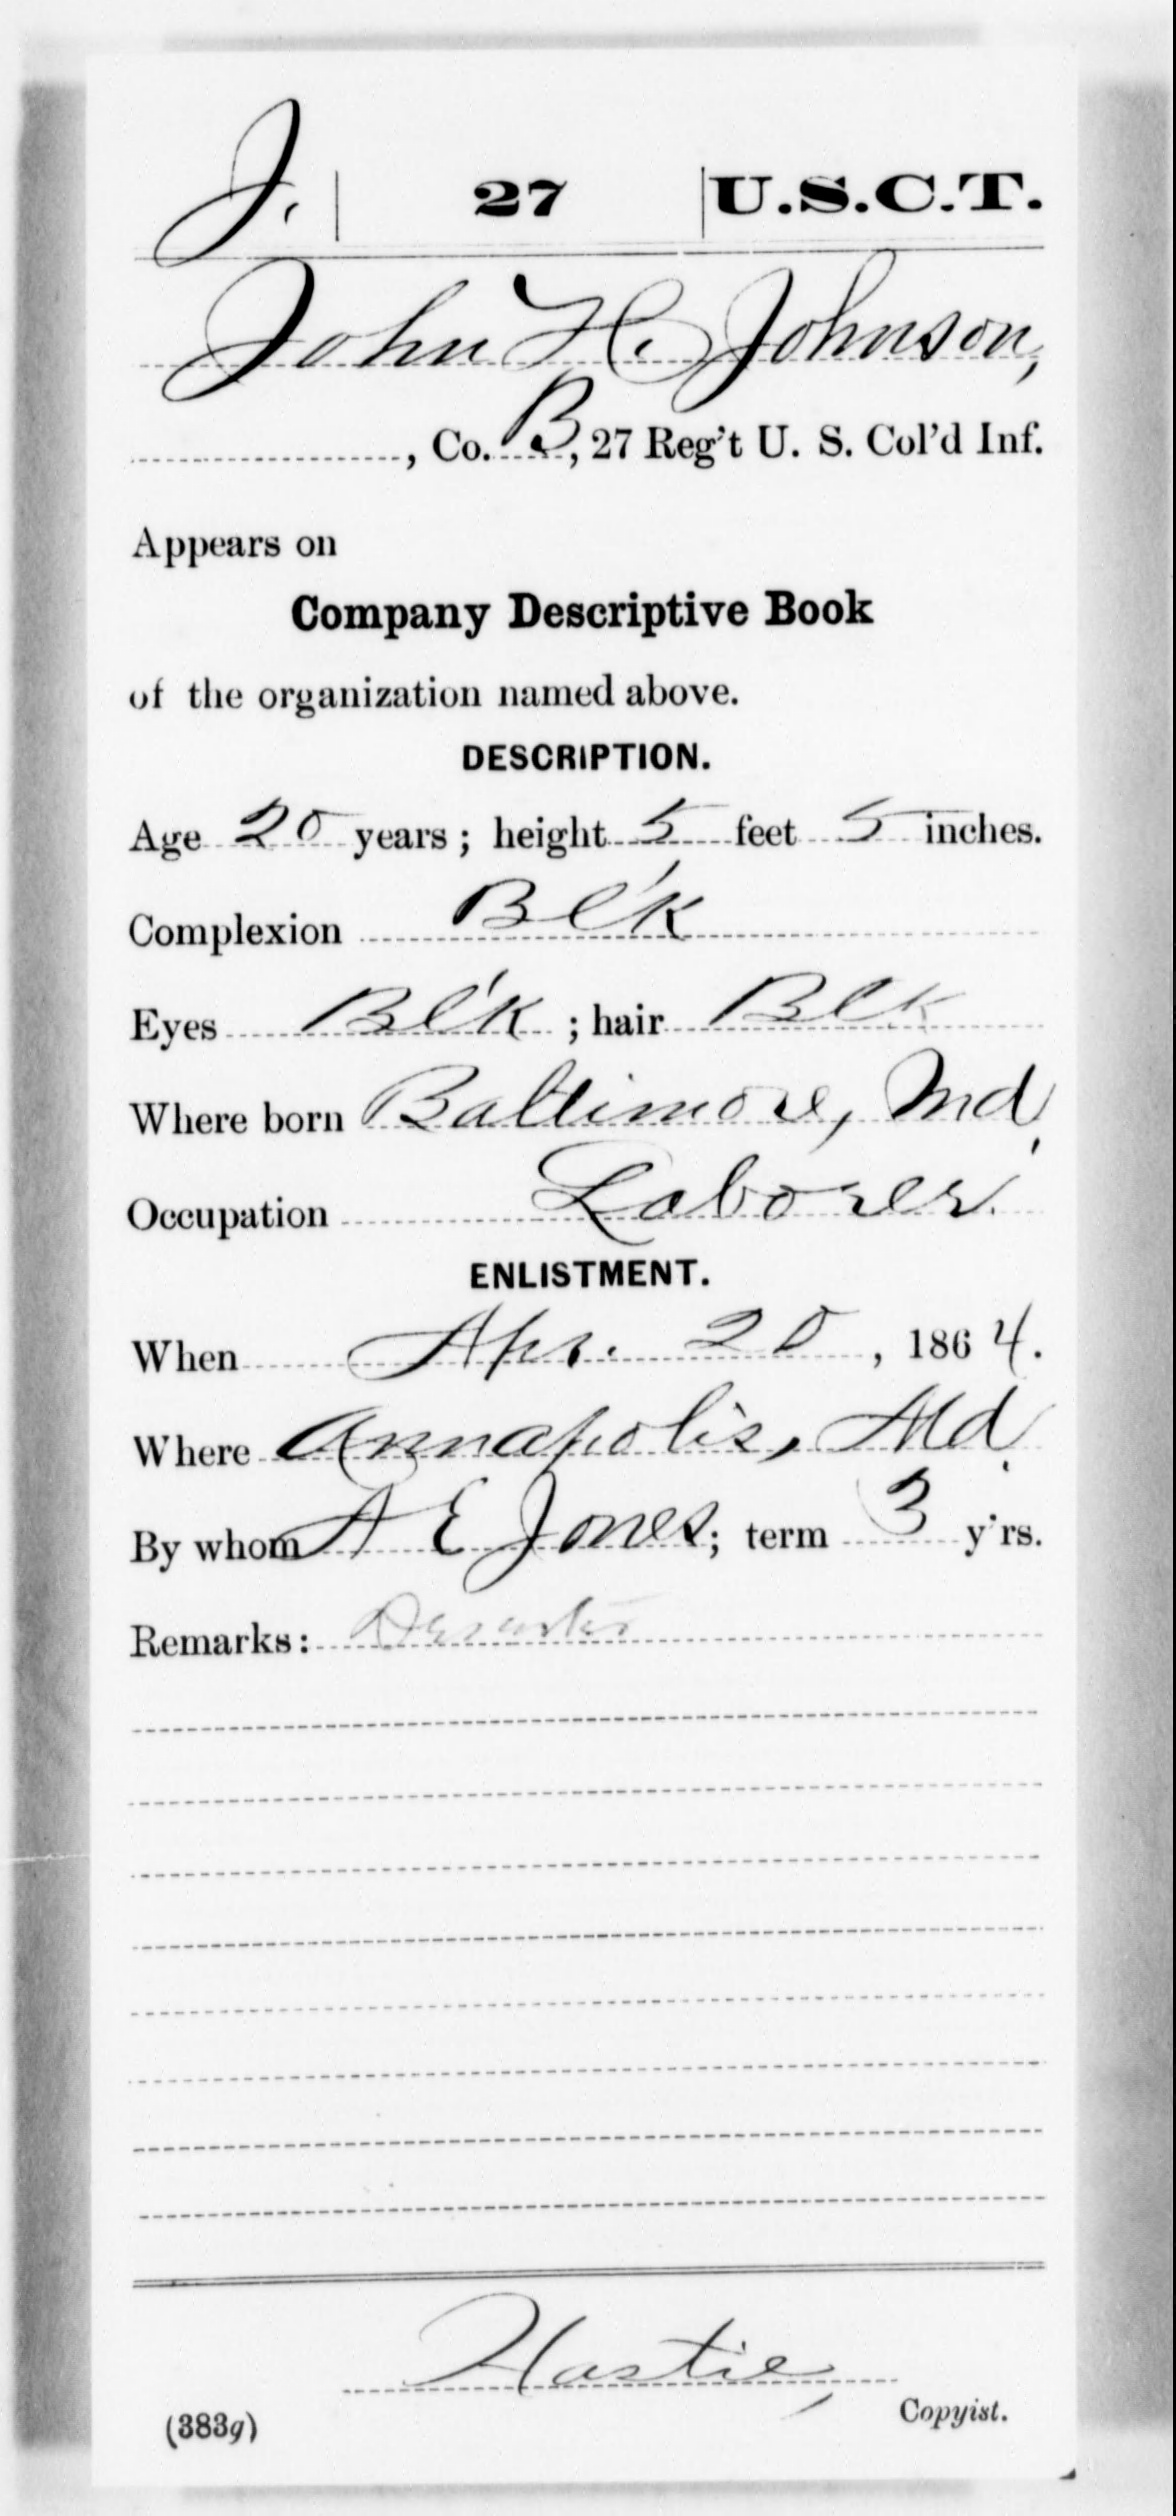 J. | 27 | U.S.C.T.
John H. Johnson,
, Co. B, 27 Reg't U. S. Col'd Inf.
Appears on
Company Descriptive Book
of the organization named above.
DESCRIPTION.
Age 20 years; height 5 feet 5 inches.
Complexion Bl'k
Eyes Bl'k; hair Blk
Where born Baltimore, Md.
Occupation Laborer.
ENLISTMENT.
When Apr. 20, 1864.
Where Annapolis, Md.
By whom A E Jones; term 3 y'rs.
Remarks: Deserter
Hastie,
(383g) Copyist.